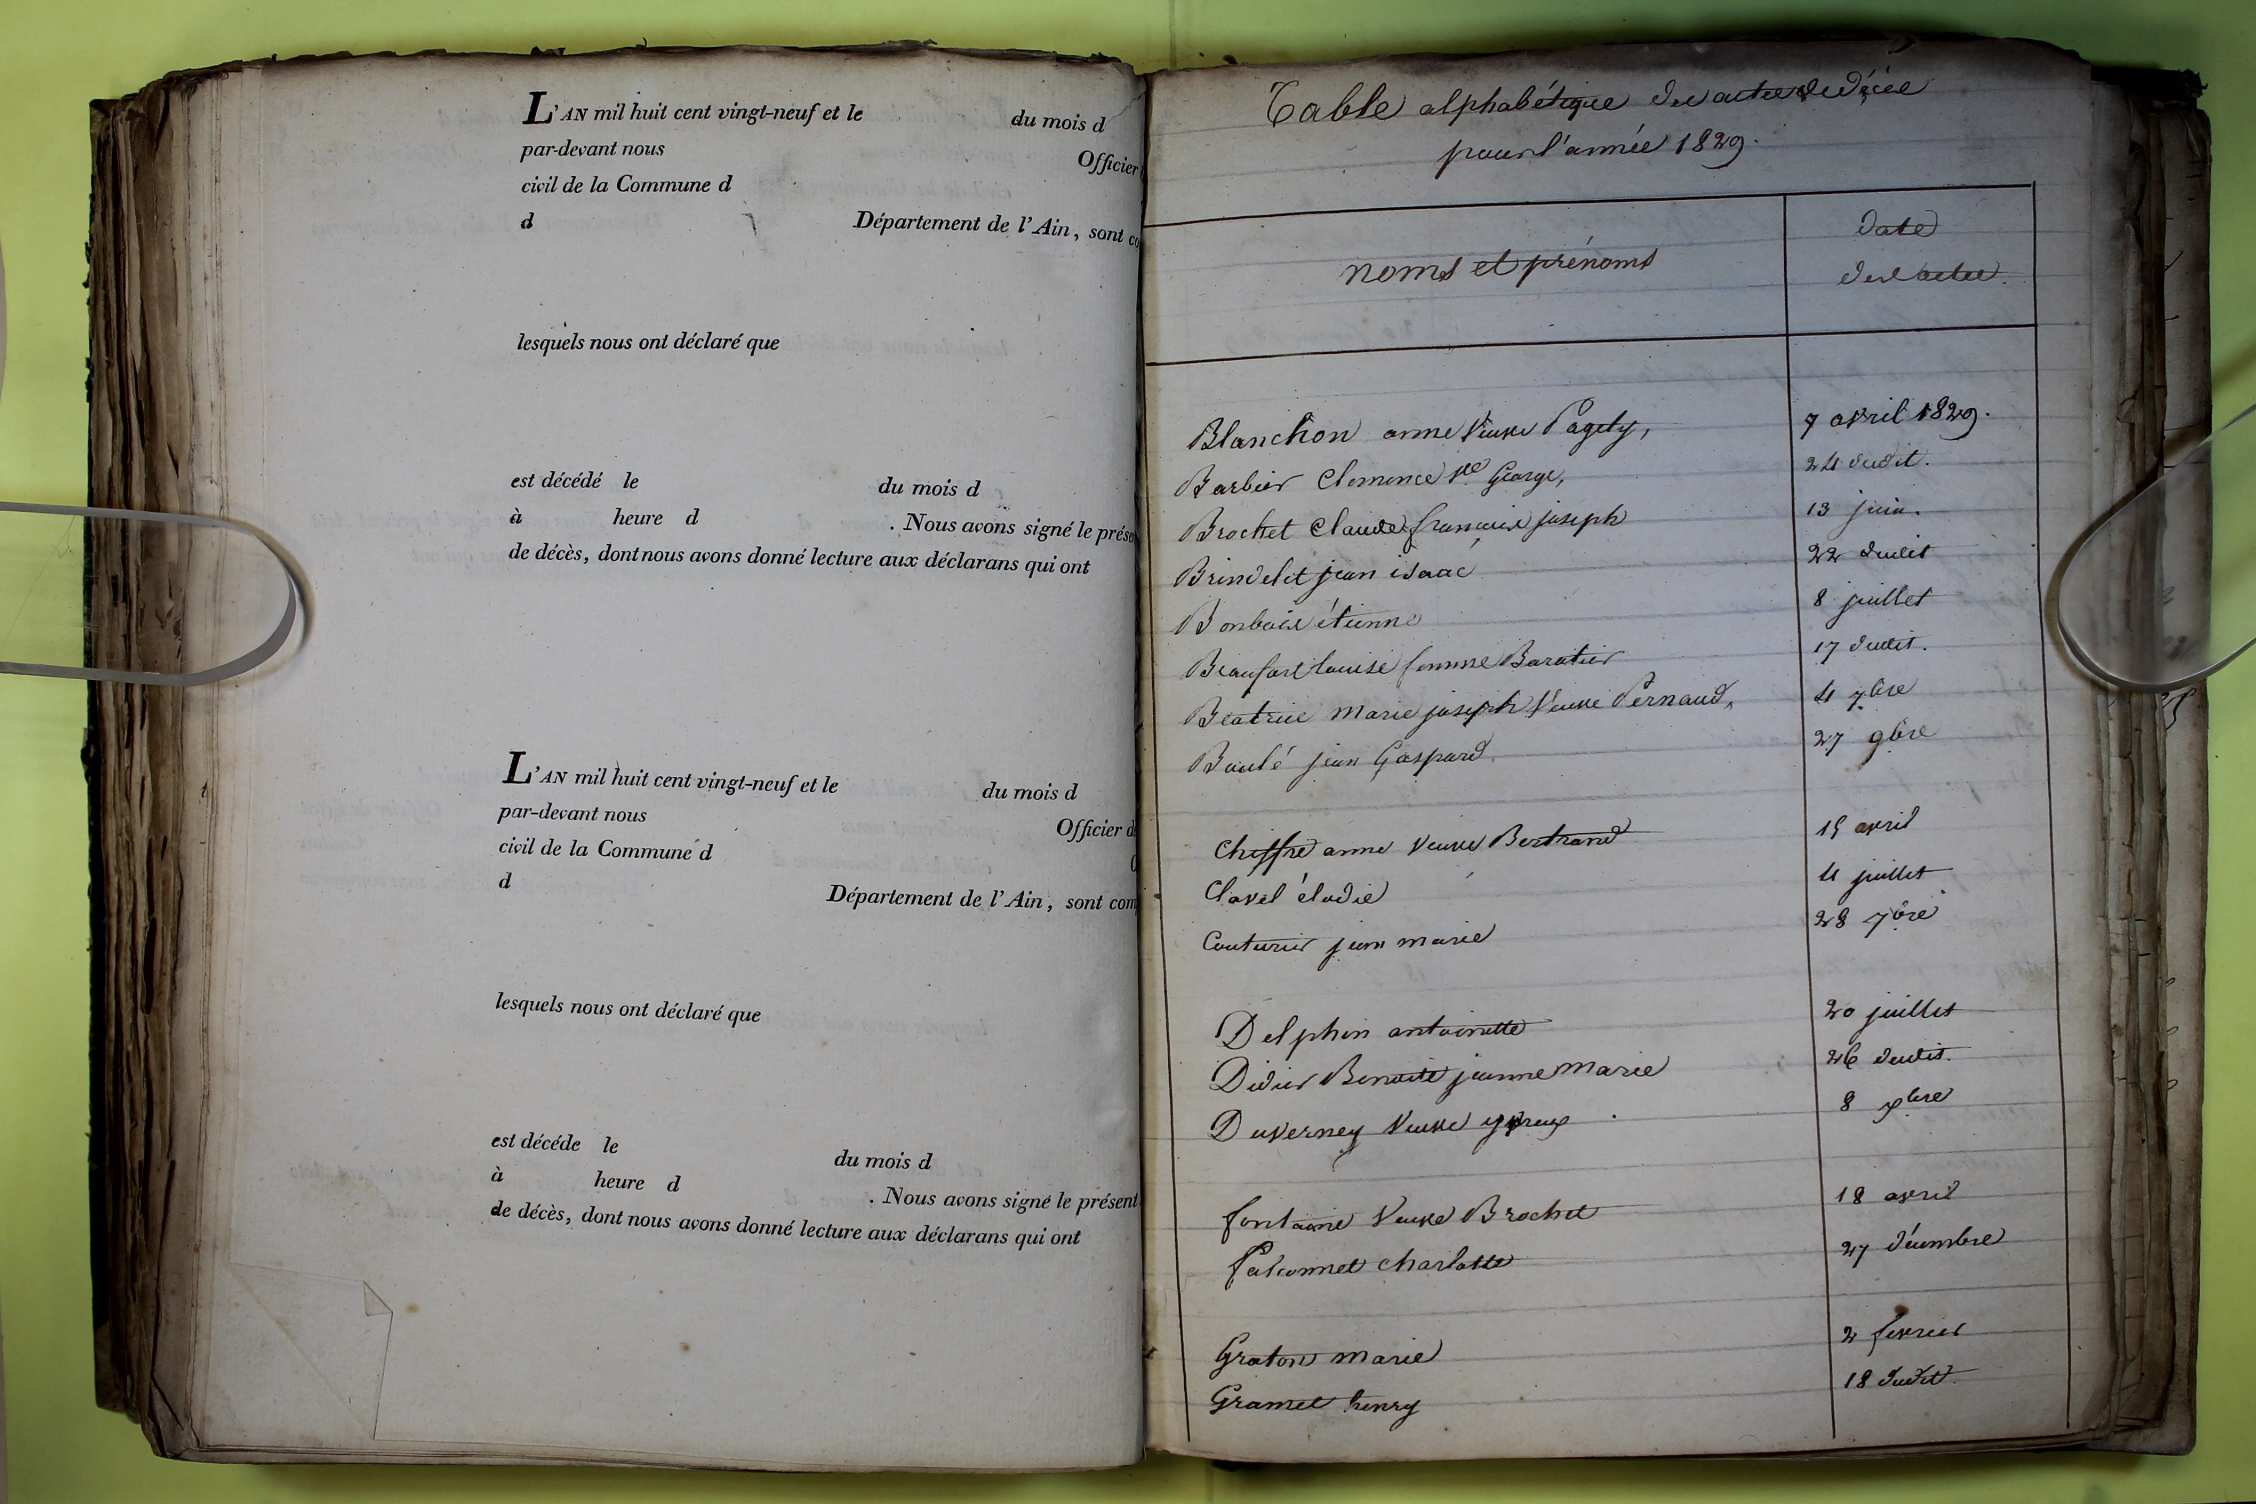 L'AN mil huit cent vingt-neuf et le du mois d
par-devant nous Officier
civil de la Commune d
d Département de l'Ain, sont co
lesquels nous ont déclaré que
est décédé le du mois d
à heure d . Nous avons signé le prése
de décès, dont nous avons donné lecture aux déclarans qui ont
L'AN mil huit cent vingt-neuf et le du mois d
par-devant nous Officier d
civil de la Commune d
d Département de l'Ain, sont com
lesquels nous ont déclaré que
est décéde le du mois d
à heure d . Nous avons signé le présent
de décès, dont nous avons donné lecture aux déclarans qui ont
Table alphabétique des actes de décès
pour l'année 1829.
noms et prénoms
date
des actes.
Blanchon anne Veuve Pagety, 7 avril 1829.
Barbier Clemence Ve George, 24 dudit.
Brochet Claude françois joseph 13 juin.
Brindelet jean isaac 22 dudit
Bonbois étienne 8 juillet
Beaufort louise femme Baratier 17 dudit.
Beatrice marie joseph Veuve Pernaud, 4 7bre
Boulé jean Gaspard. 27 9bre
Chiffre anne Veuve Bertrand 15 avril
Clavel élodie 4 juillet
Couturier jean marie 28 7bre
Delphin antoinette 20 juillet
Didier Benoite jeanne marie 26 dudit.
Duverney Veuve 8 xbre
fontaine Veuve Brochet 18 avril
falconnet charlotte 27 décembre
Graton marie 2 fevrier
Gramet henry 18 dudit.